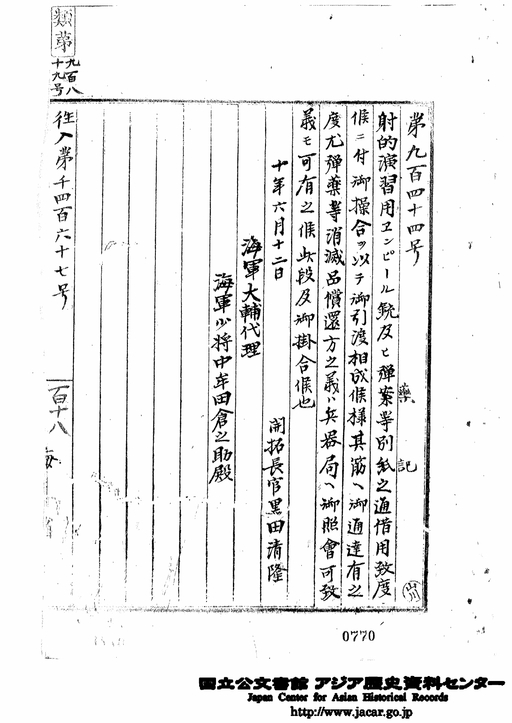 第九百四十四号
射的演習用ヱンピール銃及ヒ弾薬等別紙之通借用致度
候ニ付御操合ヲ以テ御引渡相成候様其筋ヘ御通達有之
度尤弾薬等消滅品償還方之義ハ兵器局ヘ御照會可致
義モ可有之候此段及御掛合候也
十年六月十二日
開拓長官黒田清隆
海軍大輔代理
海軍少将中牟田倉之助殿
薬
記
山川
類第
九百八
十九号
往入第千四百六十七号
百十八
海
0770
国立公文書館 アジア歴史資料センター
Japan Center for Asian Historical Records
http://www.jacar.go.jp